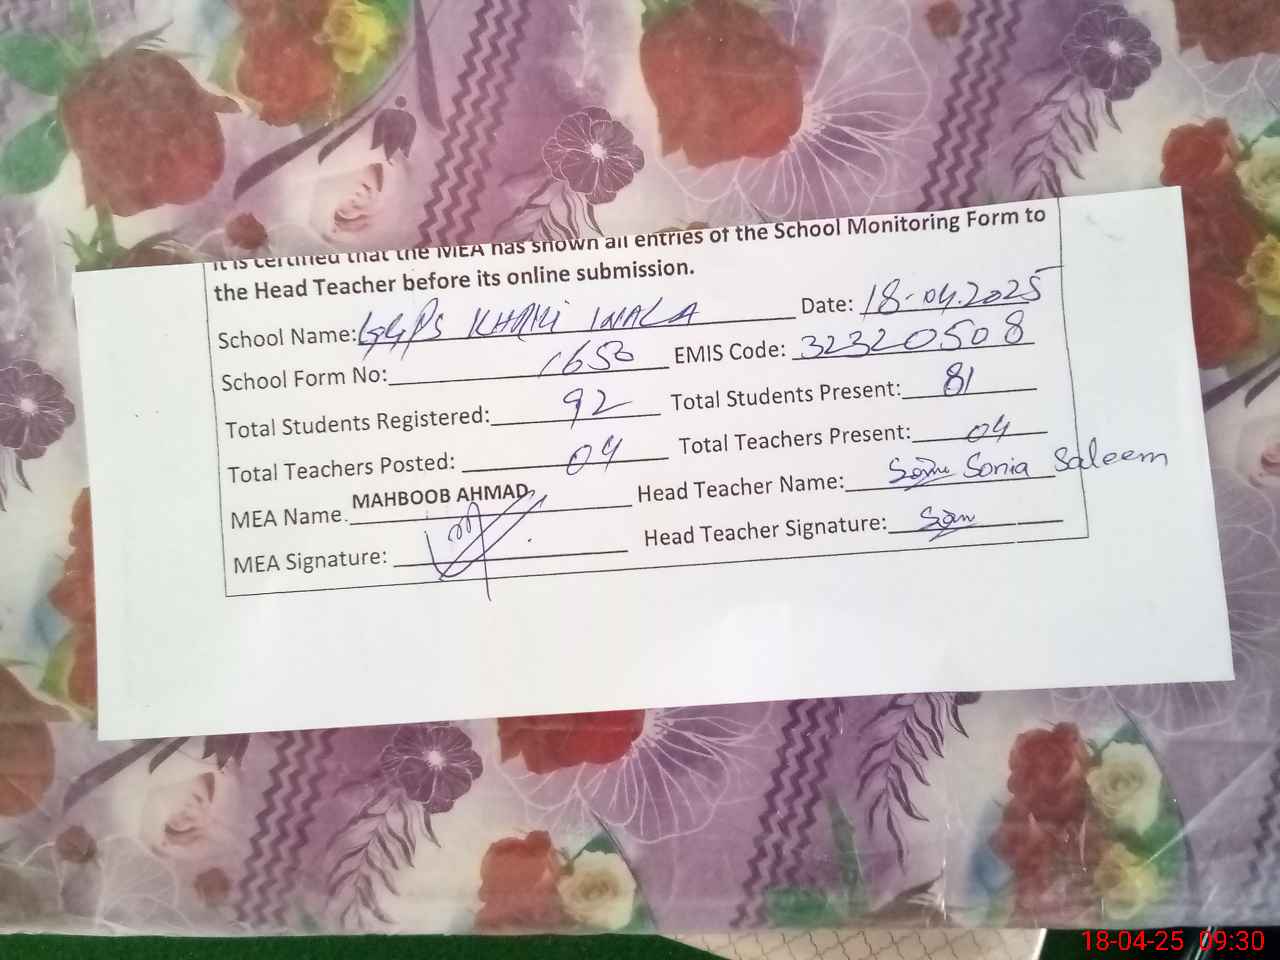 It is certified that the MEA has shown all entries of the School Monitoring Form to
the Head Teacher before its online submission.
School Name: GGPS KHAKI WALA Date: 18-04.2025
School Form No: 1650 EMIS Code: 32320508
Total Students Registered: 92 Total Students Present: 81
Total Teachers Posted: 04 Total Teachers Present: 04
MEA Name. MAHBOOB AHMAD Head Teacher Name: Sonia Saleem
MEA Signature: Head Teacher Signature:
18-04-25 09:30